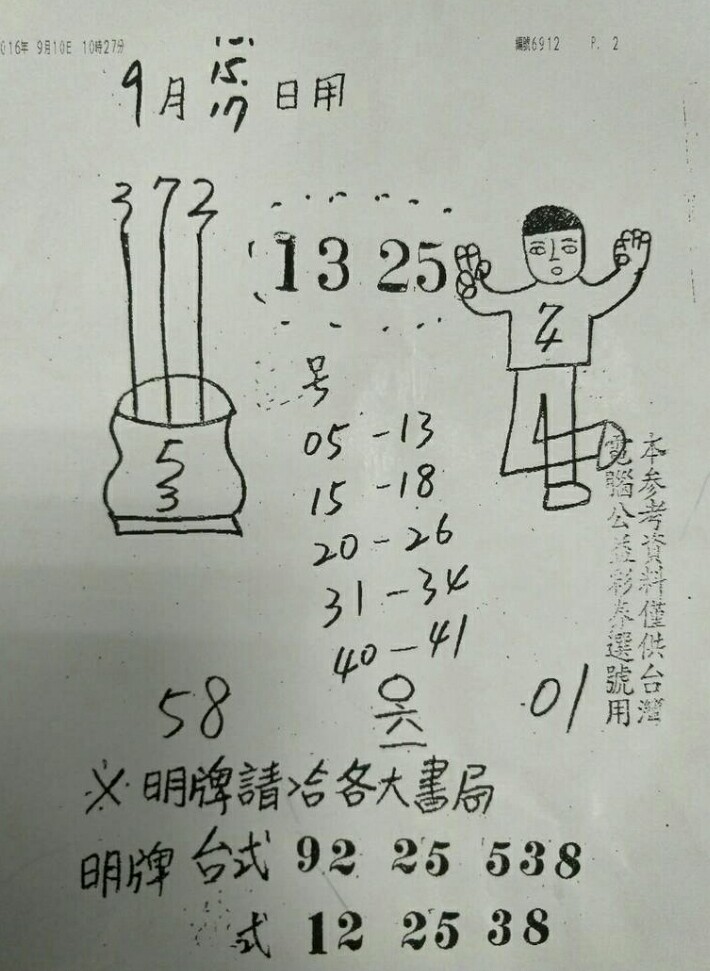 016年 9月10日 10時27分
編號6912 P. 2
9月 15. 17 日用
3 7 2
13 25
7
4
1
号
05 - 13
15 - 18
20 - 26
31 - 34
40 - 41
5
3
58
〇六一
01
本參考資料僅供台灣
電腦公益彩券選號用
※明牌請洽各大書局
明牌 台式 92 25 538
式 12 25 38